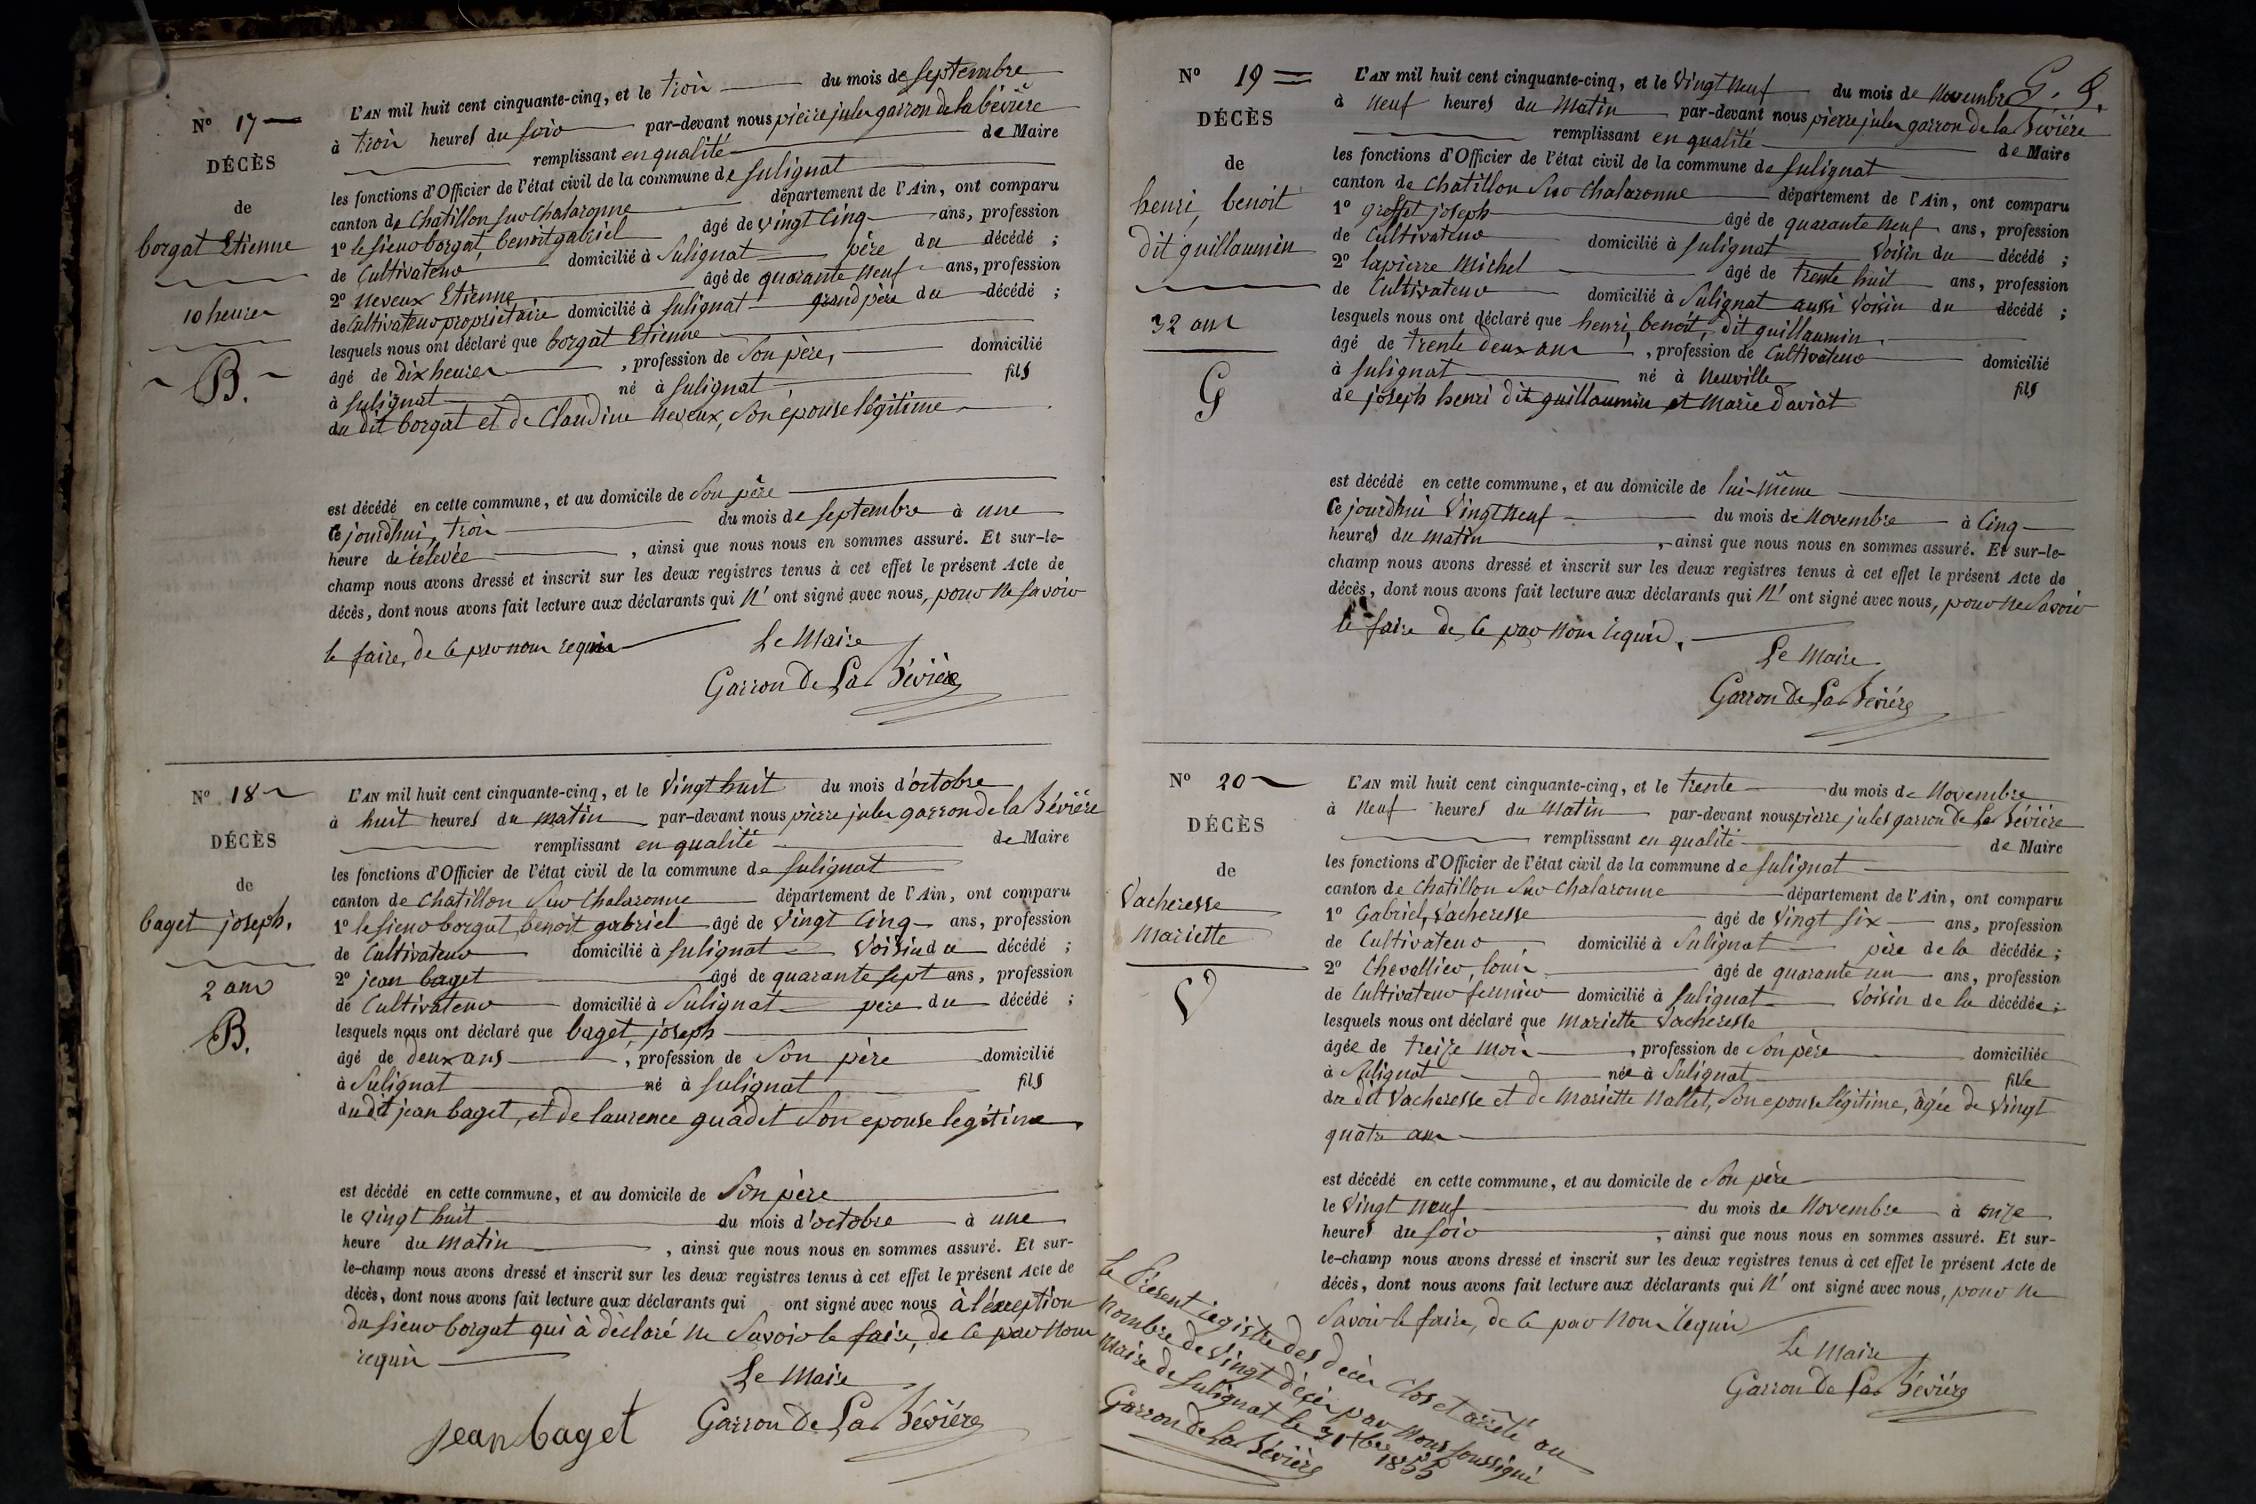 N° 17
DÉCÈS
de
borgat Etienne
10 heures
B.
L'AN mil huit cent cinquante-cinq, et le trois du mois de septembre
à trois heures du soir par-devant nous pierre jules garron de la bévière
remplissant en qualité de Maire
les fonctions d'Officier de l'état civil de la commune de sulignat
canton de Chatillon sur Chalaronne département de l'Ain, ont comparu
1° le sieur borgat, benoit gabriel âgé de vingt cinq ans, profession
de Cultivateur domicilié à Sulignat père du décédé ;
2° neveux Etienne âgé de quarante neuf ans, profession
de Cultivateur propriétaire domicilié à sulignat grand père du décédé ;
lesquels nous ont déclaré que borgat Etienne
âgé de dix heures , profession de Son père, domicilié
à sulignat né à sulignat fils
du dit borgat et de Claudine neveux, son épouse légitime
est décédé en cette commune, et au domicile de Son père
Ce jourdhui, trois du mois de septembre à une
heure de relevée , ainsi que nous nous en sommes assuré. Et sur-le-
champ nous avons dressé et inscrit sur les deux registres tenus à cet effet le présent Acte de
décès, dont nous avons fait lecture aux déclarants qui n' ont signé avec nous, pour ne savoir
le faire, de ce par nous requis
Le Maire
Garron de La Bévière
N° 18
DÉCÈS
de
baget joseph.
2 ans
B.
L'AN mil huit cent cinquante-cinq, et le vingt huit du mois d'octobre
à huit heures du matin par-devant nous pierre jules garron de la Bévière
remplissant en qualité de Maire
les fonctions d'Officier de l'état civil de la commune de sulignat
canton de Chatillon sur Chalaronne département de l'Ain, ont comparu
1° le sieur borgat benoit gabriel âgé de vingt cinq ans, profession
de Cultivateur domicilié à sulignat voisin du décédé ;
2° jean baget âgé de quarante sept ans, profession
de Cultivateur domicilié à Sulignat père du décédé ;
lesquels nous ont déclaré que baget, joseph
âgé de deux ans , profession de Son père domicilié
à Sulignat né à sulignat fils
du dit jean baget, et de laurence guadet son epouse legitime
est décédé en cette commune, et au domicile de Son père
le vingt huit du mois d'octobre à une
heure du matin , ainsi que nous nous en sommes assuré. Et sur-
le-champ nous avons dressé et inscrit sur les deux registres tenus à cet effet le présent Acte de
décès, dont nous avons fait lecture aux déclarants qui ont signé avec nous à l'éxception
du sieur borgat qui à déclaré ne Savoir le faire, de ce par nous
requis
Le Maire
jean baget Garron de La Bévière
G. B.
N° 19
DÉCÈS
de
henri, benoit
dit guillaumin
32 ans
G
L'AN mil huit cent cinquante-cinq, et le vingt neuf du mois de Novembre
à neuf heures du matin par-devant nous pierre jules garron de la Bévière
remplissant en qualité de Maire
les fonctions d'Officier de l'état civil de la commune de sulignat
canton de Chatillon sur Chalaronne département de l'Ain, ont comparu
1° groffet joseph âgé de quarante neuf ans, profession
de Cultivateur domicilié à sulignat voisin du décédé ;
2° lapierre Michel âgé de trente huit ans, profession
de Cultivateur domicilié à Sulignat aussi voisin du décédé ;
lesquels nous ont déclaré que henri, benoit, dit guillaumin
âgé de trente deux ans , profession de Cultivateur domicilié
à sulignat né à Neuville fils
de joseph henri dit guillaumin et Marie daviat
est décédé en cette commune, et au domicile de lui-même
Ce jourdhui vingt neuf du mois de Novembre à Cinq
heures du matin , ainsi que nous nous en sommes assuré. Et sur-le-
champ nous avons dressé et inscrit sur les deux registres tenus à cet effet le présent Acte de
décès, dont nous avons fait lecture aux déclarants qui n' ont signé avec nous, pour ne Savoir
le faire de ce par nous requis.
Le Maire
Garron de La Bévière
N° 20
DÉCÈS
de
Vacheresse
Mariette
V
L'AN mil huit cent cinquante-cinq, et le trente du mois de Novembre
à neuf heures du matin par-devant nous pierre jules garron de La Bévière
remplissant en qualité de Maire
les fonctions d'Officier de l'état civil de la commune de sulignat
canton de Chatillon sur Chalaronne département de l'Ain, ont comparu
1° Gabriel, Vacheresse âgé de vingt six ans, profession
de Cultivateur, domicilié à Sulignat père de la décédée ;
2° Chevallier, louis âgé de quarante un ans, profession
de Cultivateur fermier domicilié à sulignat voisin de la décédée ;
lesquels nous ont déclaré que Mariette Vacheresse
âgée de treize mois , profession de Son père domiciliée
à Sulignat née à Sulignat fille
du dit Vacheresse et de Mariette Nallet, son epouse légitime, âgée de vingt
quatre ans
est décédé en cette commune, et au domicile de Son père
le vingt neuf du mois de Novembre à onze
heures du soir , ainsi que nous nous en sommes assuré. Et sur-
le-champ nous avons dressé et inscrit sur les deux registres tenus à cet effet le présent Acte de
décès, dont nous avons fait lecture aux déclarants qui n' ont signé avec nous, pour ne
Savoir le faire, de ce par nous requis
Le Maire
Garron de La Bévière
Le Présent registre des décès clos et arrêté au
nombre de vingt décès par nous soussigné
Maire de Sulignat le 31 Xbre 1855
Garron de La Bévière